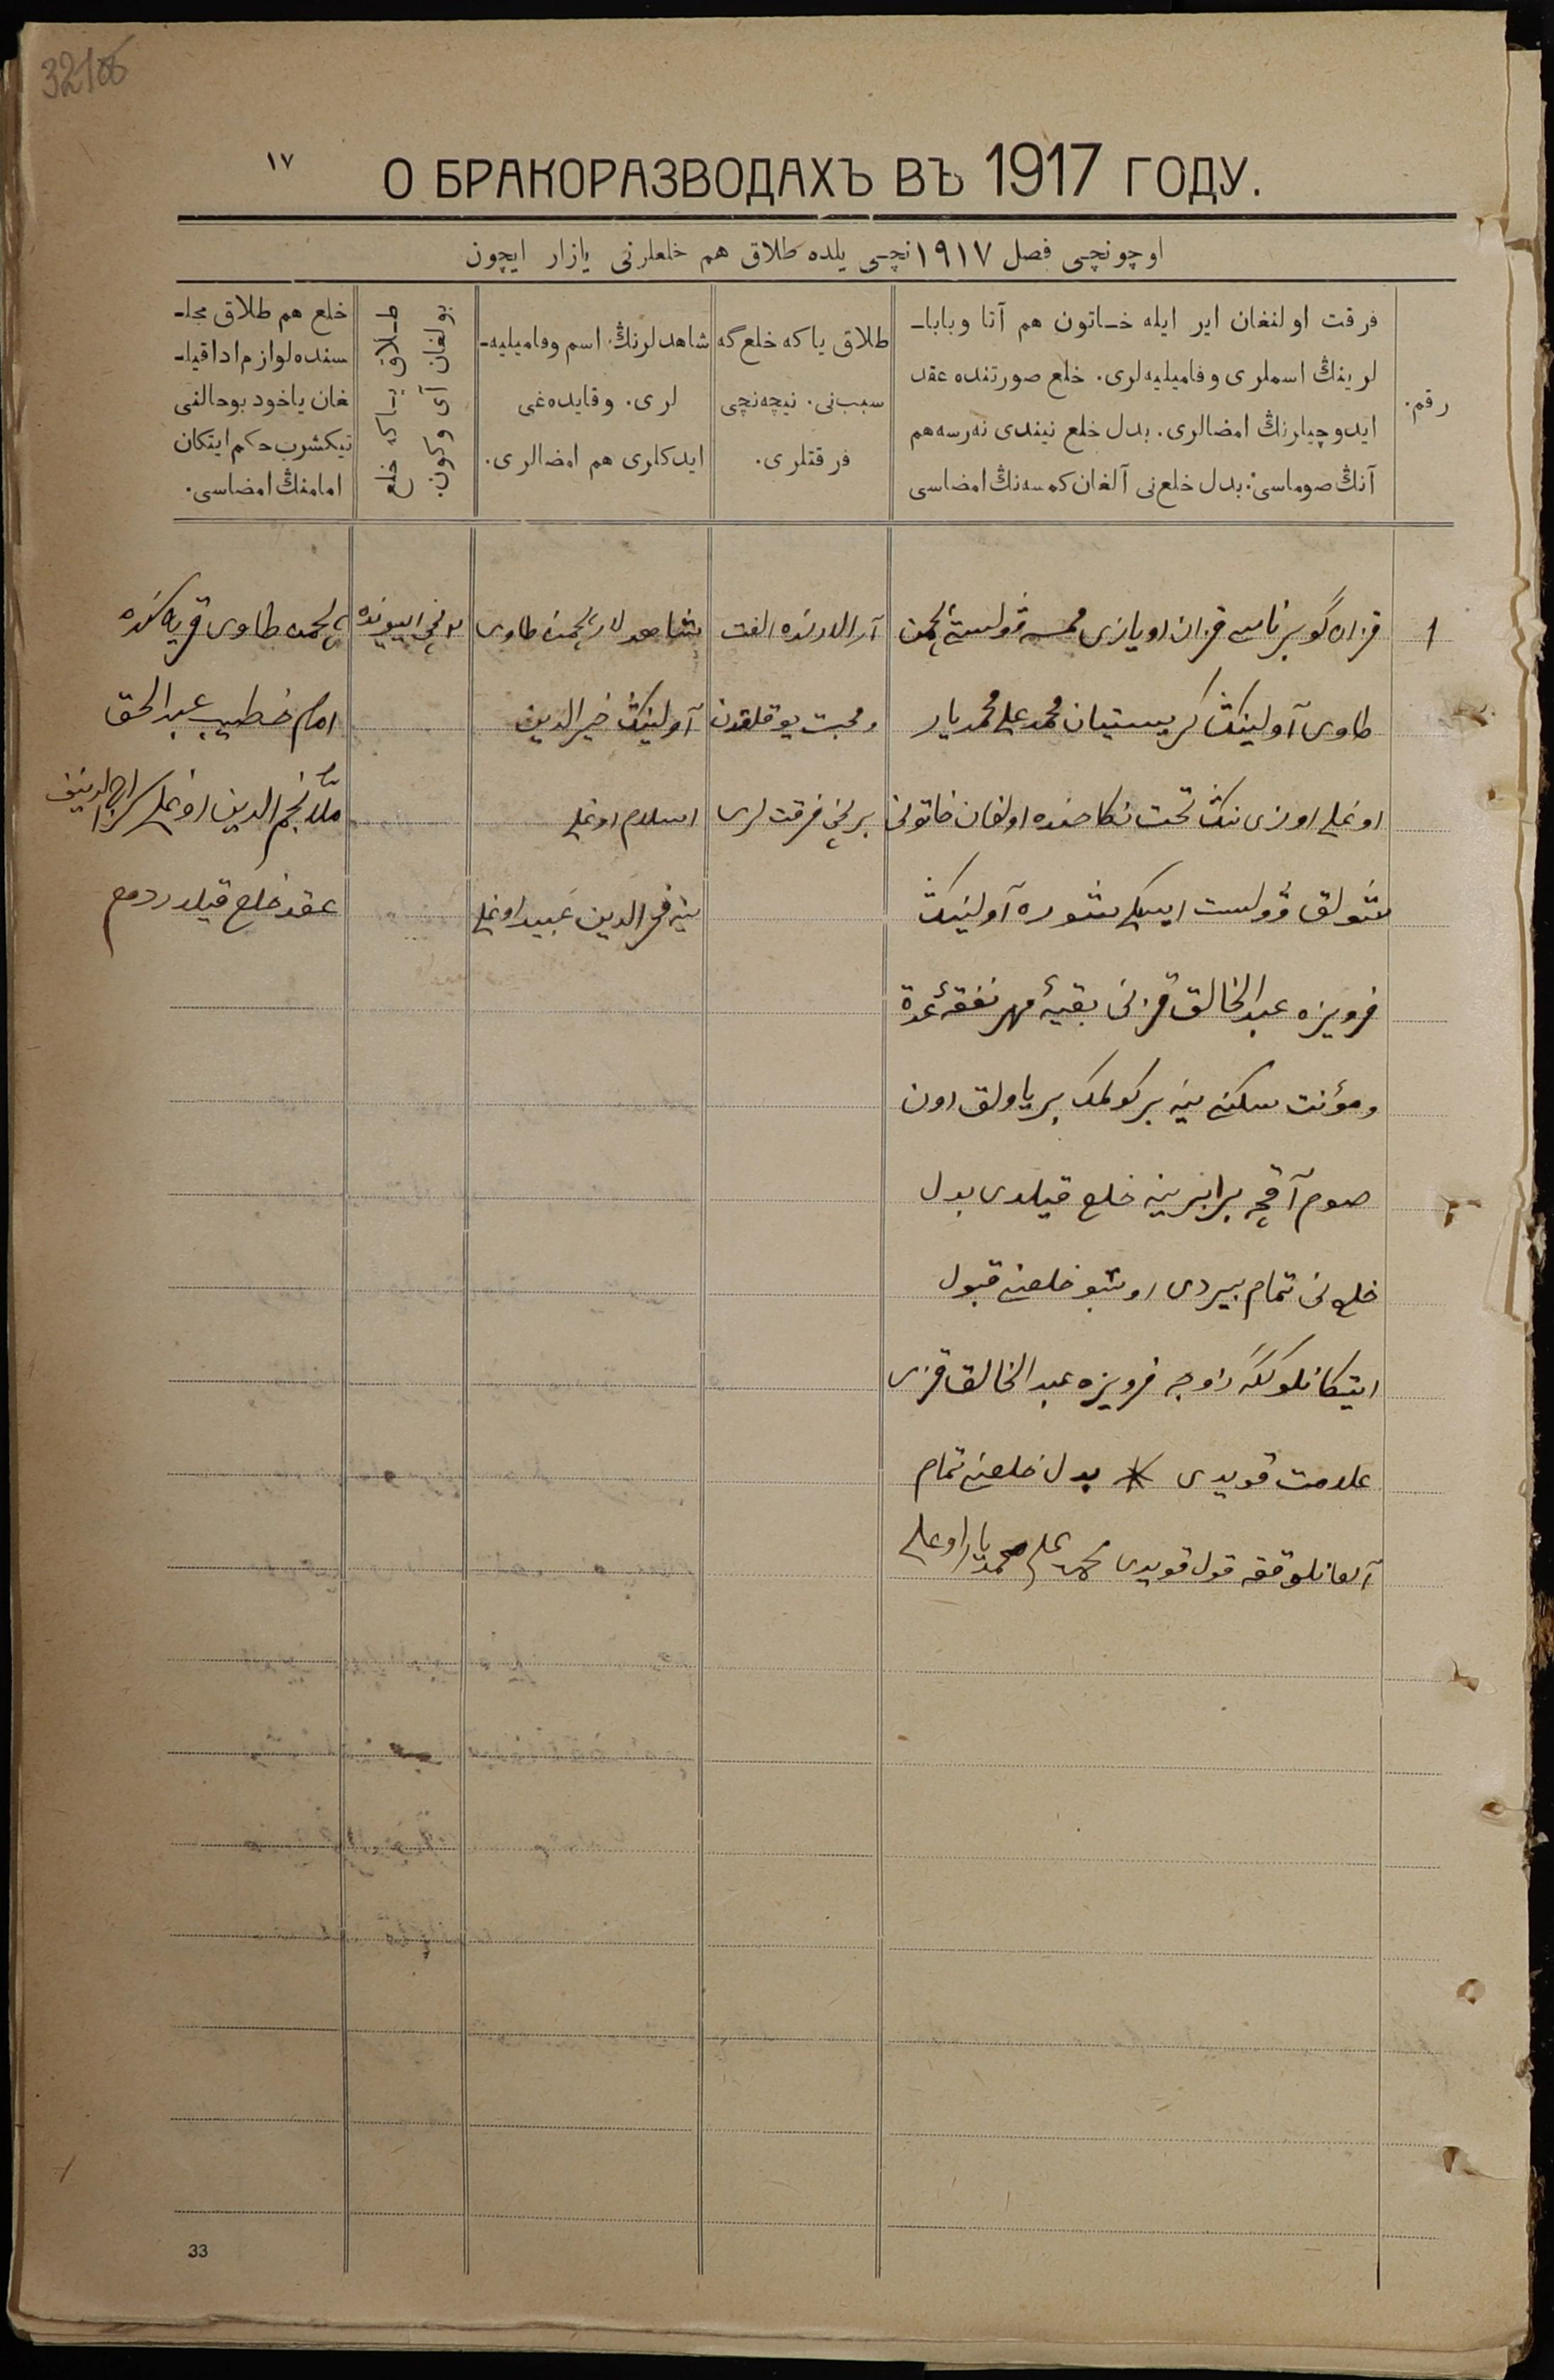 ١٧
О БРАКОРАЗВОДАХЪ ВЪ 1917 ГОДУ.
اوچونچی فصل ١٩١٧نچی یلده طلاق هم خلعلرنی یازار ایچون
رقم.
فرقت اولنغان ایر ایله خاتون هم آتا وبابا-
لرینڭ اسملری وفامیلیه‌لری. خلع صورتنده عقد
ایدوچیلرنڭ امضالری. بدل خلع نیندی نەرسه هم
آنڭ صوماسی. بدل خلع‌نی آلغان کمسه‌نڭ امضاسی
طلاق یاکه خلع‌گه
سبب‌نی. نیچه‌نچی
فرقتلری.
شاهدلرنڭ اسم وفامیلیه-
لری. وقایده‌غی
ایدکلری هم امضالری.
طلاق یاکه خلع
بولغان آی وکون.
خلع هم طلاق مجلـ
سنده‌لوازم‌اداقیلـ
غان‌یاخود بوحالنی
تیکشرب حکم ایتکان
امامنڭ امضاسی.
١
قزان گوبرناسی قزان اویازی
طاوی آولینڭ کریستیان محمدعلی محمدیار
اوغلی اوزی‌ننڭ تحت نکاحنده اولغان خاتونی
وولست ایسکی آولینڭ
عبدالخالق قزنی بقیۀ مهر نفقۀ عدة
ومؤنت سکنی ینه بر کولمک بر یاولق اون
صوم آقچه برابرینه خلع قیلدی بدل
خلع‌نی تمام بیردی اوشبو خلعنی قبول
ایتکانلوککه زوجه عبدالخالق قزی
علامت قویدی بدل خلعنی تمام
آلغانلوققه قول قویدی محمدعلی محمدیار اوغلی
آرالارنده الفت
ومحبت یوقلقدن
برنچی فرقت‌لری
شاهدلار طاوی
آولینڭ خیرالدین
اسلام اوغلی
ینه فخرالدین عبید اوغلی
طاوی قریه‌سنده
امام خطیب عبدالحق
ملا نجم‌الدین اوغلی
عقد خلع قیلدردم
33